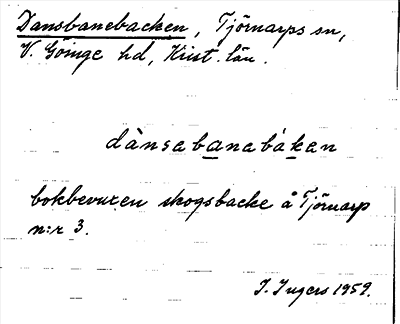 Dansbanebacken, Tjörnarps sn,
V. Göinge hd, Krist. län.
dànsabanabákan
bokbevuxen skogsbacke å Tjörnarp
n:r 3.
I. Ingers 1959.